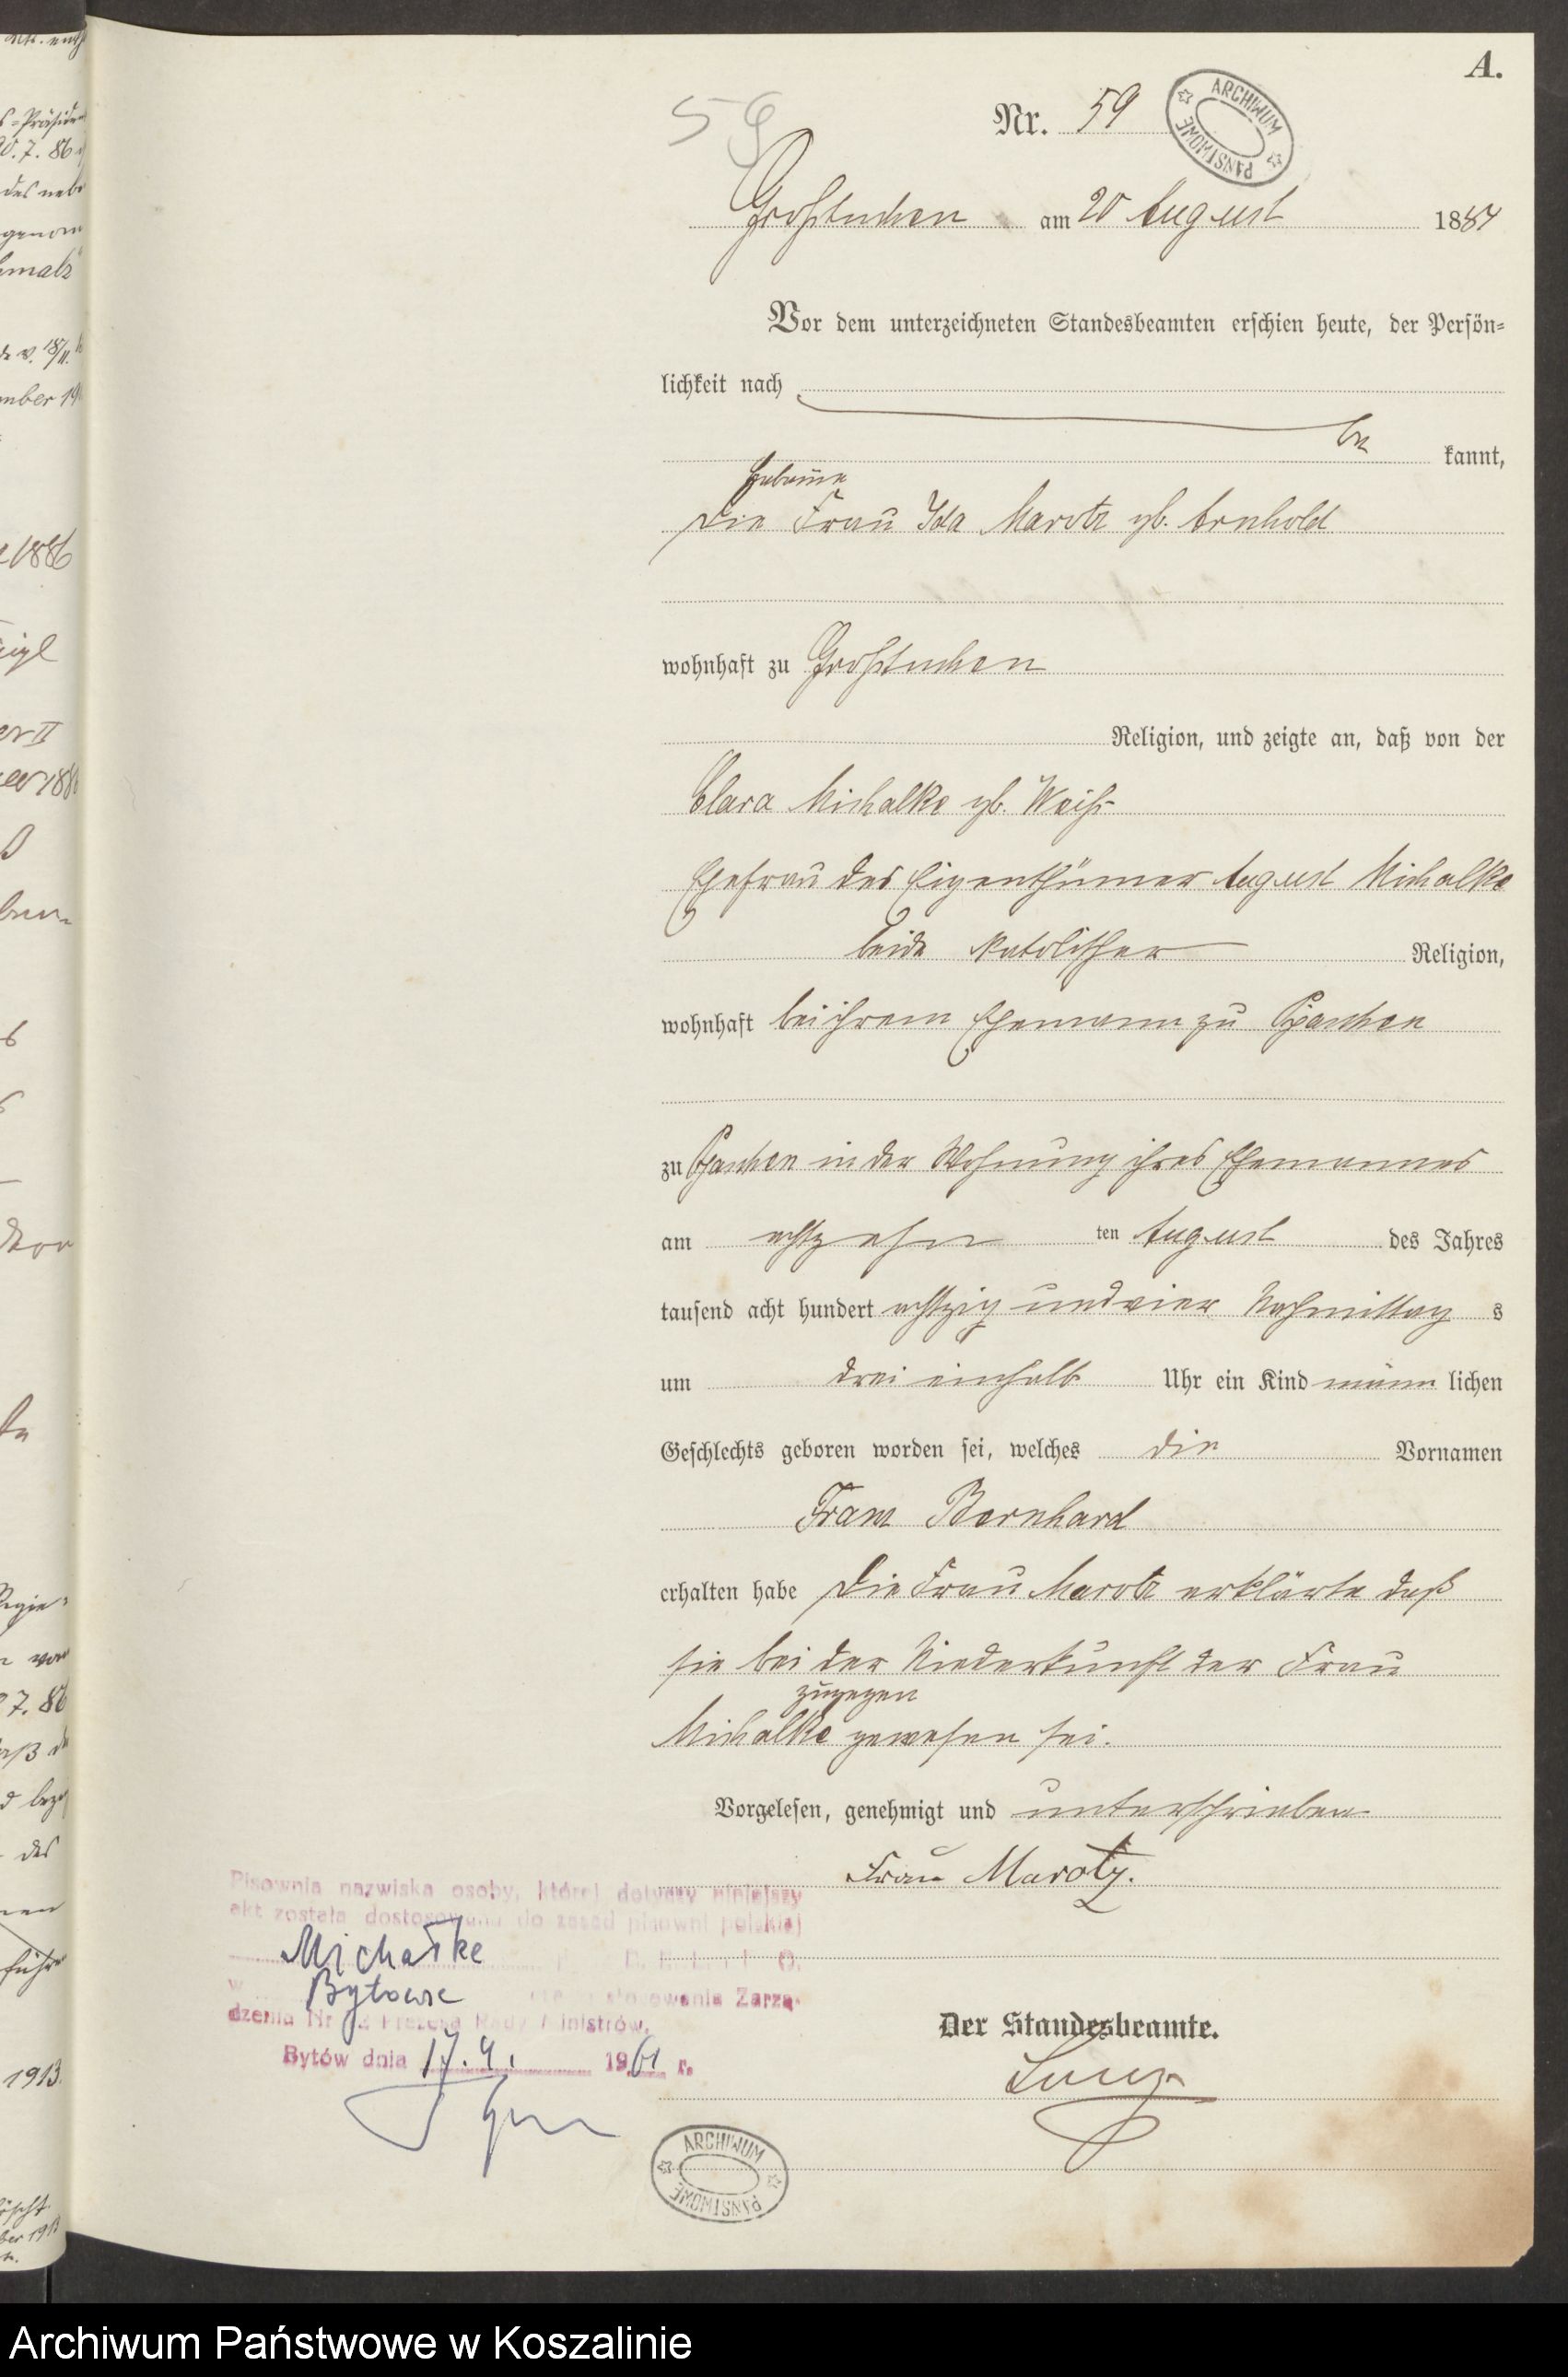 A.
59
Nr. 59
ARCHIWUM PAŃSTWOWE
Großtuchen am 20 August 1884
Vor dem unterzeichneten Standesbeamten erschien heute, der Persön-
lichkeit nach
be kannt,
Hebamme
die Frau Ida Marotz gb. Arnhold
wohnhaft zu Großtuchen
Religion, und zeigte an, daß von der
Clara Michalke gb. Weiß
Ehefrau des Eigenthümer August Michalke
beide katolischer Religion,
wohnhaft bei ihrem Ehemann zu
zu in der Wohnung ihres Ehemannes
am achtzehn ten August des Jahres
tausend acht hundert achtzig und vier Nachmittag s
um drei einhalb Uhr ein Kind männ lichen
Geschlechts geboren worden sei, welches die Vornamen
Franz Bernhard
erhalten habe die Frau Marotz erklärte daß
sie bei der Niederkunft der Frau
zugegen
Michalke gewesen sei.
Vorgelesen, genehmigt und unterschrieben
Frau Marotz.
Der Standesbeamte.
Pisownia nazwiska osoby, której dotyczy niniejszy
akt została dostosowana do zasad pisowni polskiej
Michałke
Bytowie
stosowania Zarzą-
dzenia Nr Prezesa Rady Ministrów.
Bytów dnia 17.4. 1961 r.
ARCHIWUM PAŃSTWOWE
Archiwum Państwowe w Koszalinie